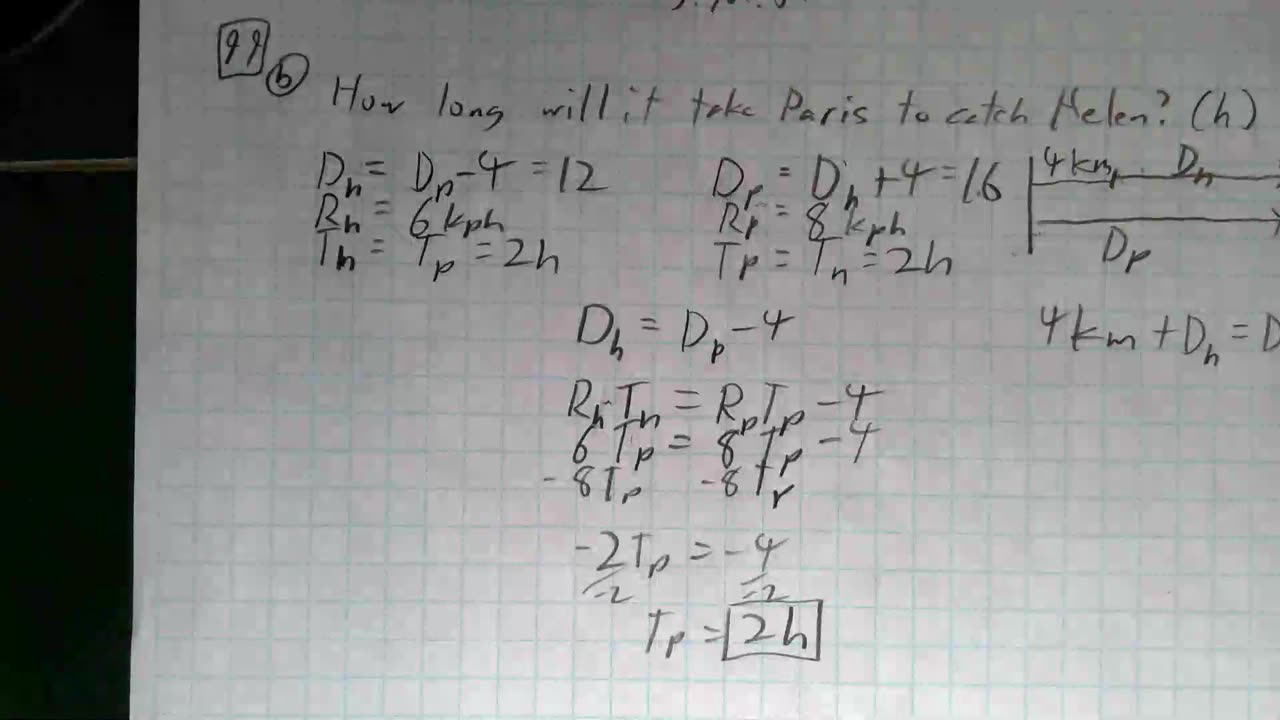 99 b How long will it take Paris to catch Helen? (h)
Dh = Dp - 4 = 12
Rh = 6 kph
Th = Tp = 2h
Dp = Dh + 4 = 16
Rp = 8 kph
Tp = Th = 2h
4km Dh
Dp
4km + Dh = D
Dh = Dp - 4
Rh Th = Rp Tp - 4
6 Tp = 8 Tp - 4
-8Tp -8Tp
-2Tp = -4
-2 -2
Tp = 2h